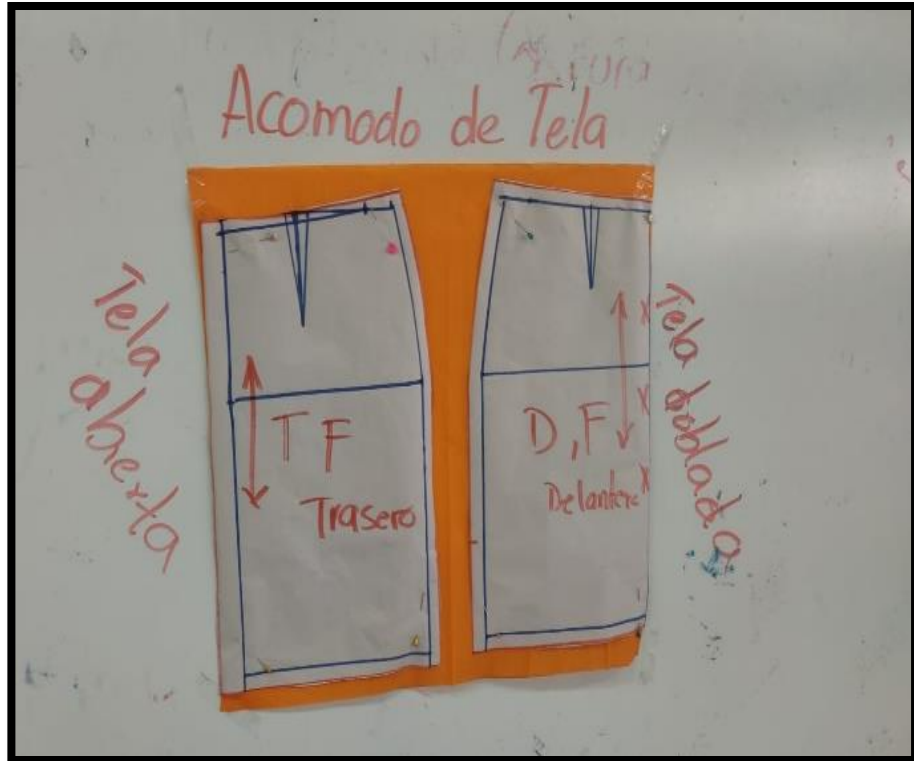 Acomodo de Tela
Tela
abierta
T F
Trasero
D, F
Delantero
x
x
x
Tela doblada